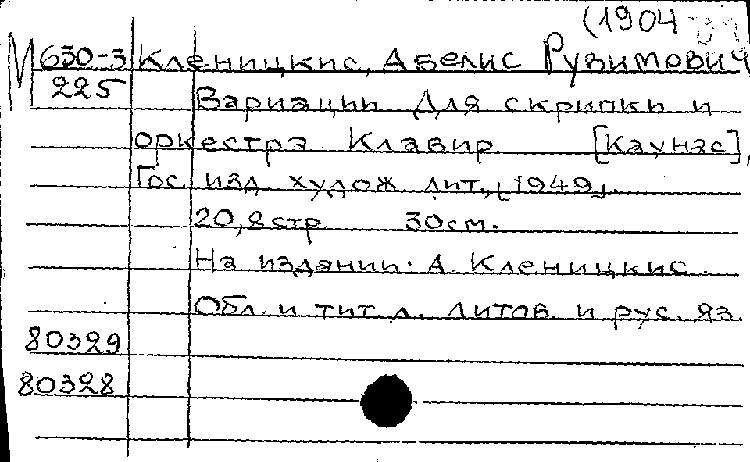 (1904
М 630-3 Кленицкис, Абелис Рувимович
225 Вариации для скрипки и
оркестра Клавир [Каунас],
Гос. изд. худож. лит., [1949].
20,8 стр 30 см.
На издании: А. Кленицкис
Обл. и тит. л. литов. и рус. яз.
80329
80328